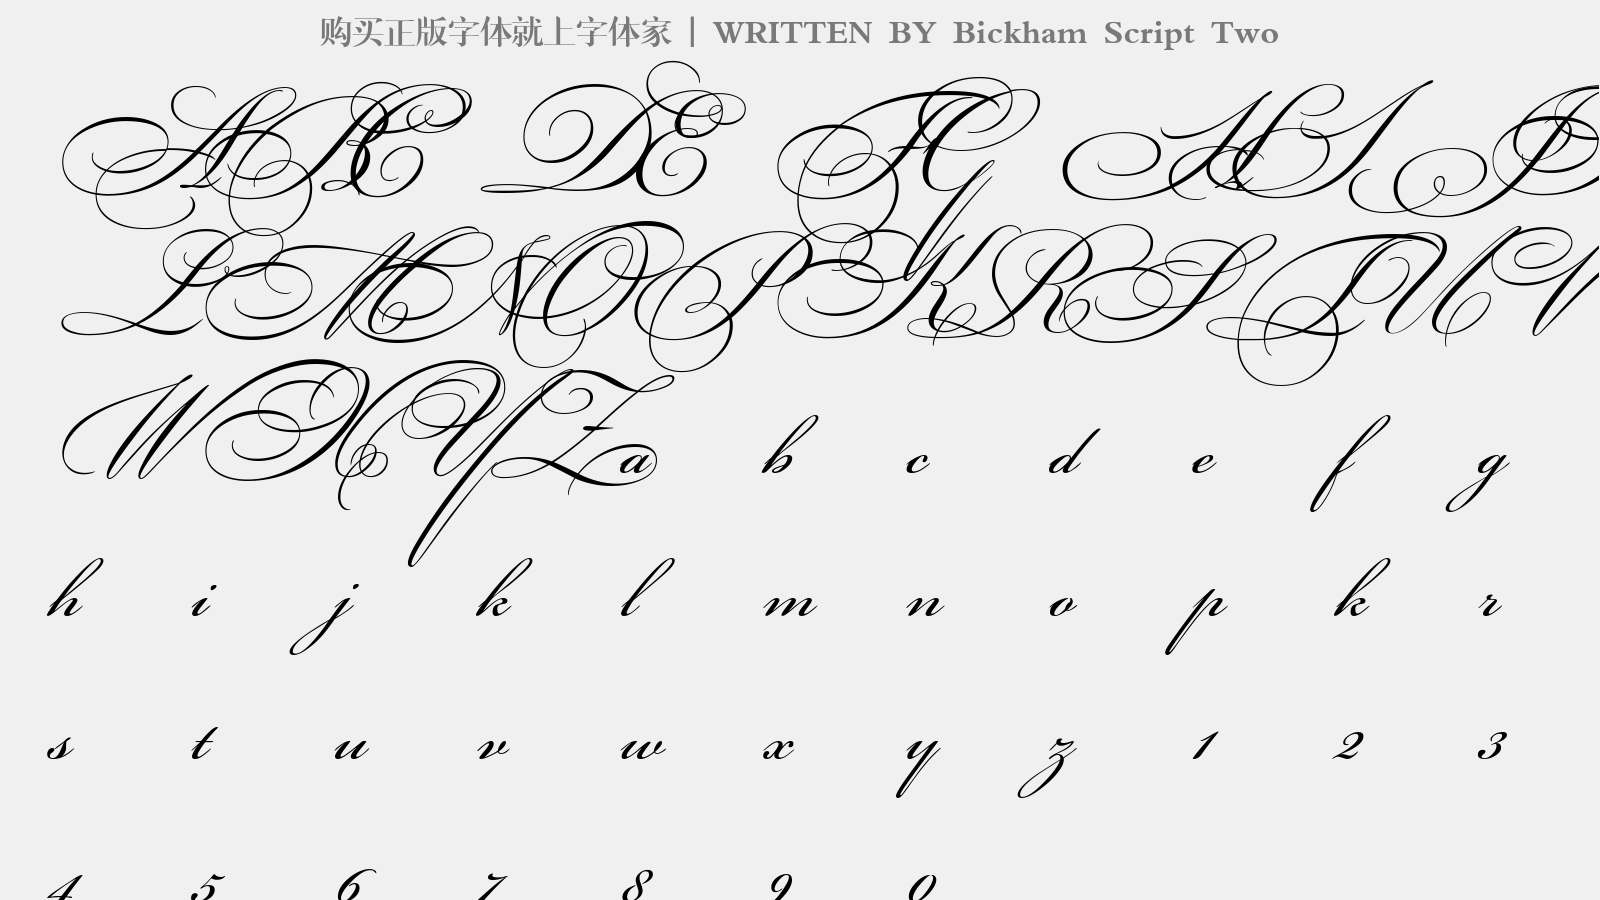 购买正版字体就上字体家 | WRITTEN BY Bickham Script Two
A B C D E F G H I J K
L M N O P K R S T U V
W X Y Z a b c d e f g
h i j k l m n o p k r
s t u v w x y z 1 2 3
4 5 6 7 8 9 0